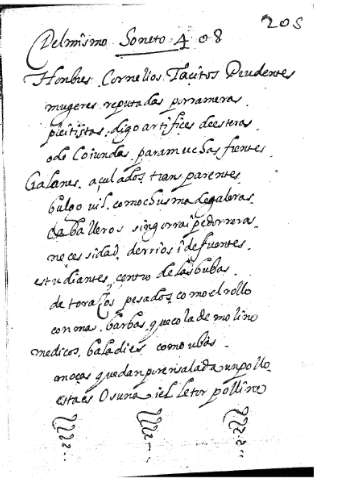 205
Del mismo Soneto 408
Honbres Cornelios Tacitos Prudentes
mugeres reputadas por rameras
pleitistas, digo artifices de esteras
o de Coiundas para muchas frentes
Galanes aculados transparentes
bulgo vil como chusma de galeras
caballeros sin gorra i pedorreras
necesidad de rrios i de fuentes
estudiantes centro de las bubas
de pesados como el rollo
con mas barbas que cola de molino
medicos baladies como ubas
mocas que dan por ensalada un pollo
esta es Osuna i el letor pollino